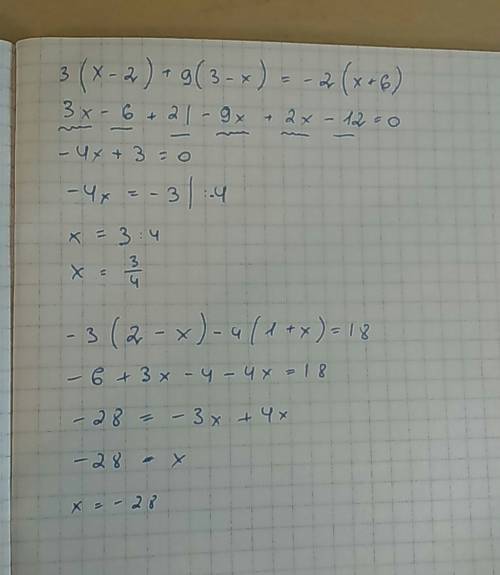 3(x-2)+9(3-x)=-2(x+6)
3x-6+21-9x+2x-12=0
-4x+3=0
-4x=-3|:-4
x=3:4
x=3/4
-3(2-x)-4(1+x)=18
-6+3x-4-4x=18
-28=-3x+4x
-28=x
x=-28